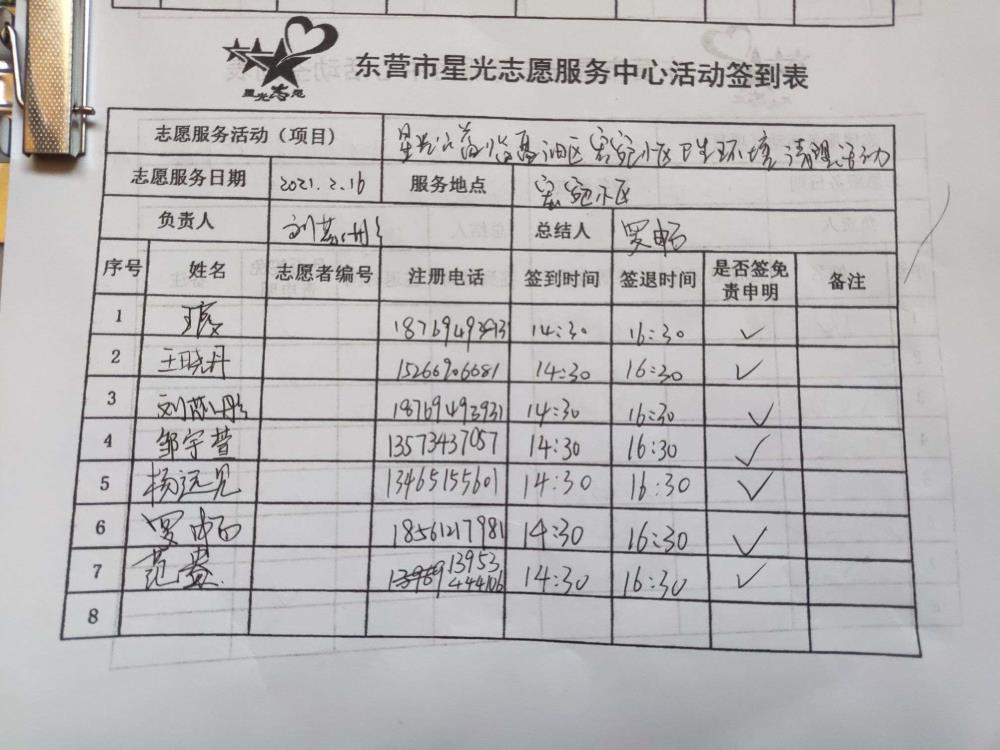 星光志愿
东营市星光志愿服务中心活动签到表
志愿服务活动（项目） 油区 小区卫生环境清理活动
志愿服务日期 2021.2.16 服务地点 小区
负责人 总结人 罗
序号 姓名 志愿者编号 注册电话 签到时间 签退时间 是否签免责申明 备注
1 14:30 16:30 ✓
2 王晓丹 15266906681 14:30 16:30 ✓
3 刘 彤 18769493931 14:30 16:30 ✓
4 邹宇萱 13573437057 14:30 16:30 ✓
5 杨远见 13465155601 14:30 16:30 ✓
6 罗 18561217981 14:30 16:30 ✓
7 范 13953444106 14:30 16:30 ✓
8